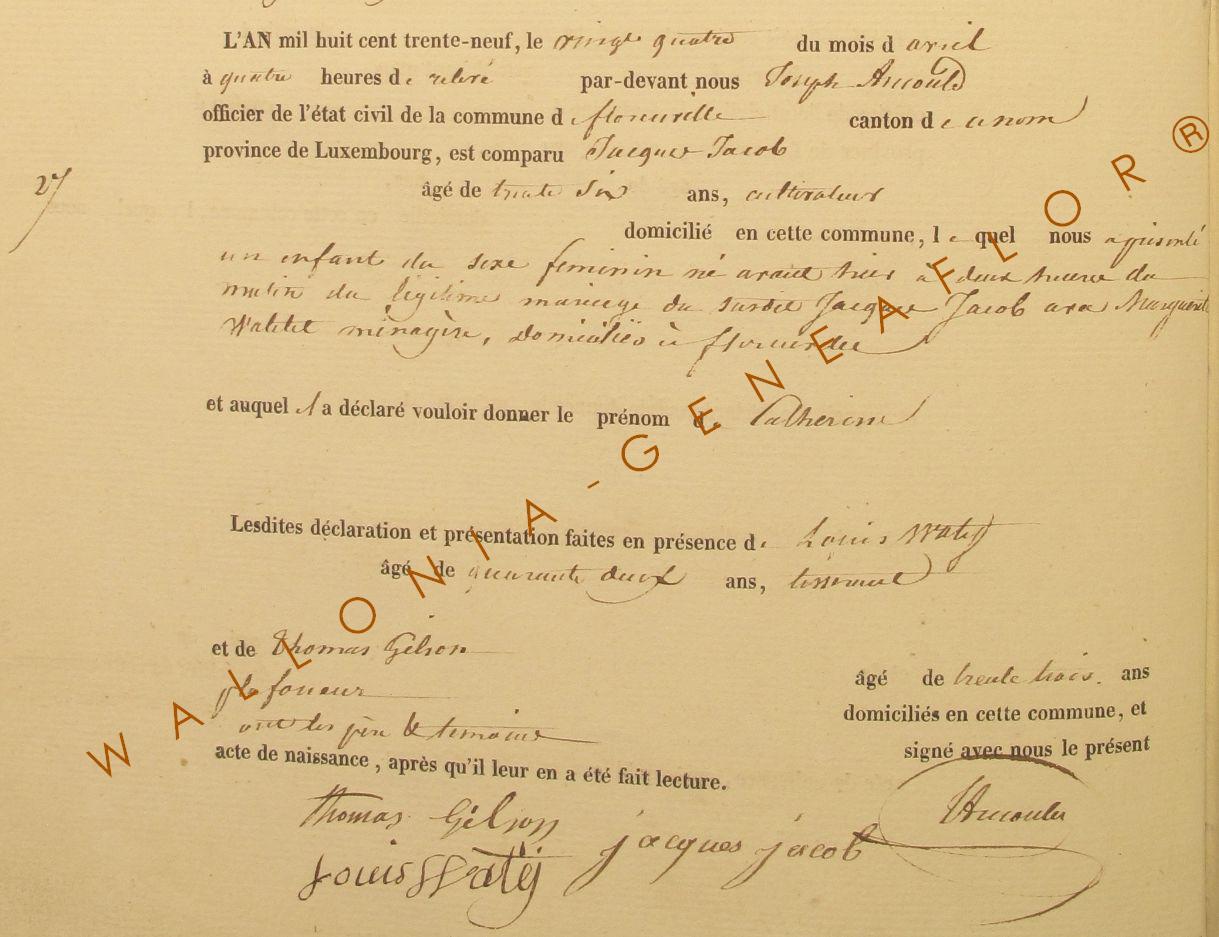 L'AN mil huit cent trente-neuf, le vingt quatre du mois d avril
à quatre heures de relevé par-devant nous Joseph Arnould
officier de l'état civil de la commune de florenville canton de
province de Luxembourg, est comparu Jacques Jacob
27
âgé de trente six ans, cultivateur
domicilié en cette commune, le quel nous a présenté
un enfant du sexe feminin né avant hier à deux heures du
matin du légitime mariage du susdit Jacques Jacob avec Marguerite
ménagère, domiciliés à florenville
et auquel il a déclaré vouloir donner le prénom de Catherine
Lesdites déclaration et présentation faites en présence de Louis Waty
âgé de quarante deux ans, tisserand
et de Thomas Gelson
âgé de trente trois. ans
plafoneur
domiciliés en cette commune, et
ont les père & temoins
signé avec nous le présent
acte de naissance, après qu'il leur en a été fait lecture.
Thomas Gélson jacques jacob JArnould
Louis Waty
WALLONIA-GENEAFLOR ®